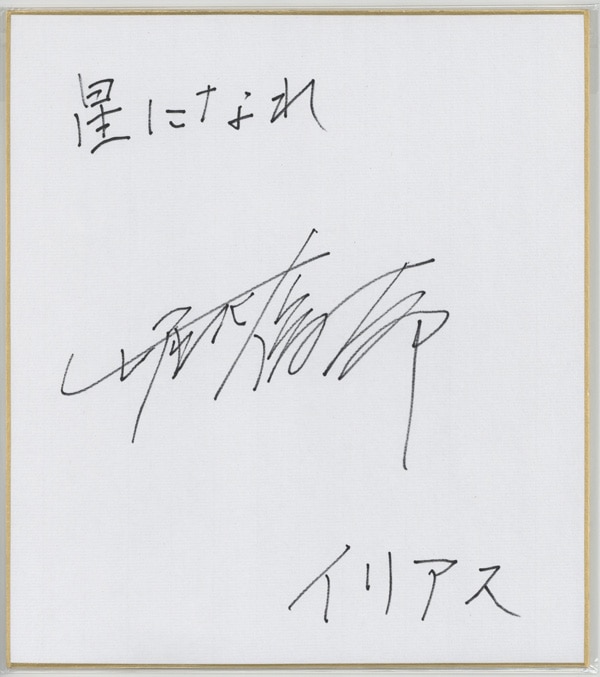 星になれ
イリアス